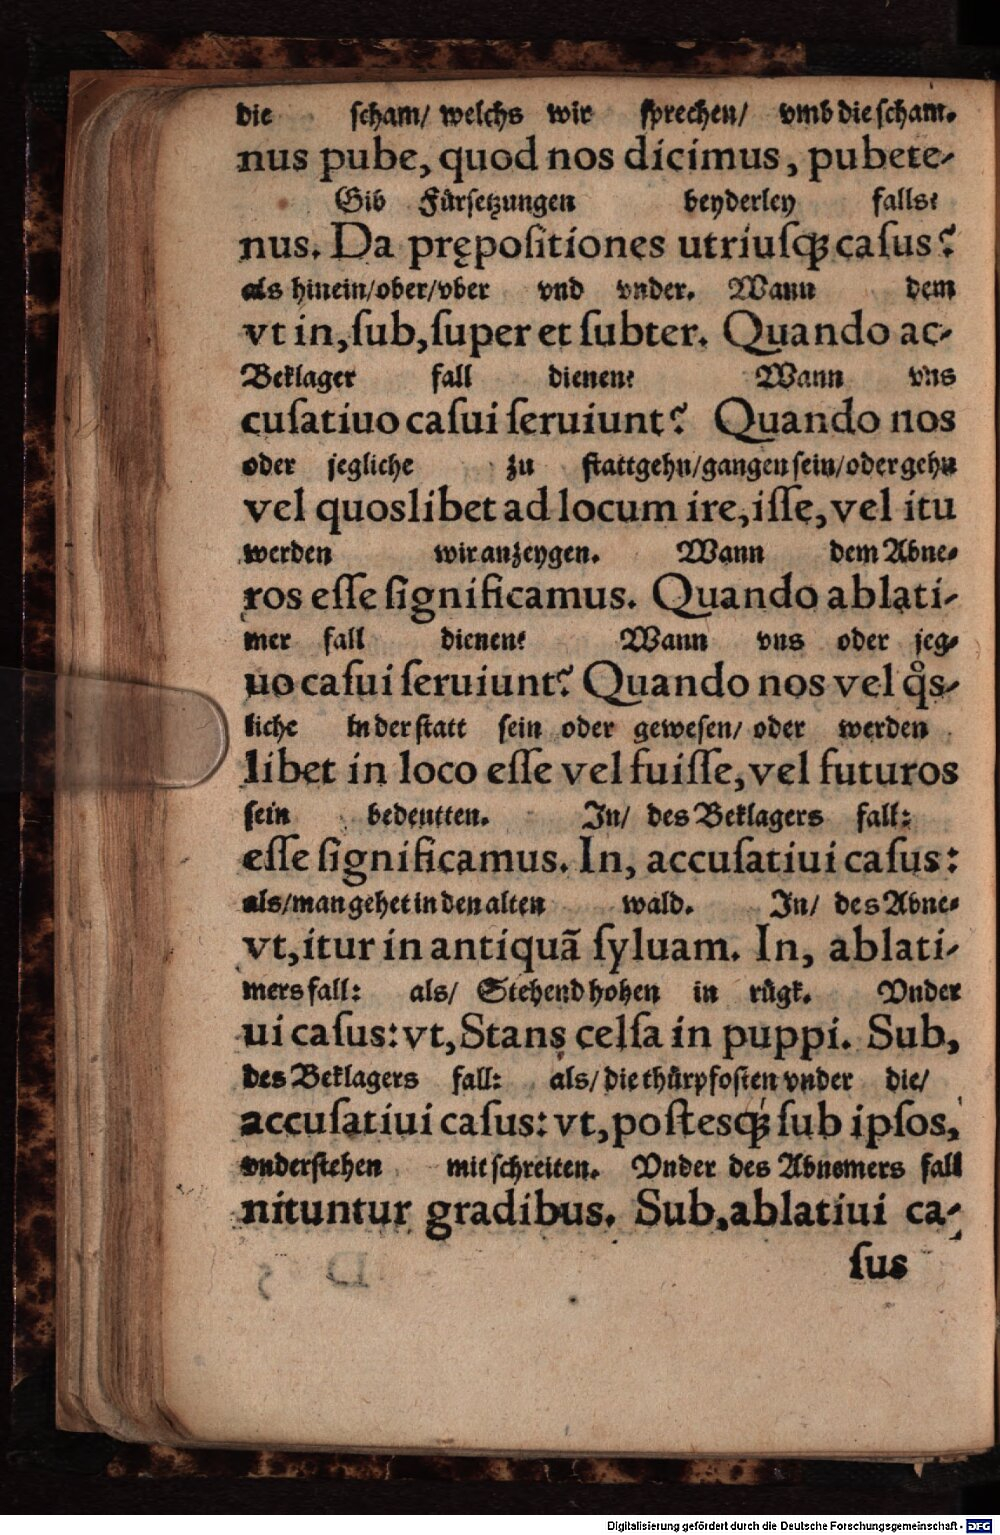 die scham/ welchs wir sprechen/ vmb die scham.
nus pube, quod nos dicimus, pubete-
Gib Fürsetzungen beyderley falls?
nus. Da prępoſitiones utriuſqꝫ caſus?
als hinein/ober/vber vnd vnder. Wann dem
vt in, ſub, ſuper et ſubter. Quando ac-
Beklager fall dienen? Wann vns
cuſatiuo caſui ſeruiunt? Quando nos
oder jegliche zu ſtattgehn/gangen ſein/oder gehn
vel quoslibet ad locum ire, iſſe, vel itu
werden wir anzeygen. Wann dem Abne-
ros eſſe ſignificamus. Quando ablati-
mer fall dienen? Wann vns oder jeg-
uo caſui ſeruiunt? Quando nos vel q̊s-
liche in der ſtatt ſein oder geweſen/ oder werden
libet in loco eſſe vel fuiſſe, vel futuros
ſein bedeutten. In/ des Beklagers fall:
eſſe ſignificamus. In, accuſatiui caſus:
als/man gehet in den alten wald. In/ des Abne-
vt, itur in antiquã ſyluam. In, ablati-
mers fall: als/ Stehend hohen in růgk. Vnder
ui caſus: vt, Stans celſa in puppi. Sub,
des Beklagers fall: als/ die thürpfoſten vnder die/
accuſatiui caſus: vt, poſtesqꝫ ſub ipſos,
vnderſtehen mit ſchreiten. Vnder des Abnemers fall
nituntur gradibus. Sub, ablatiui ca-
ſus
Digitalisierung gefördert durch die Deutsche Forschungsgemeinschaft - DFG